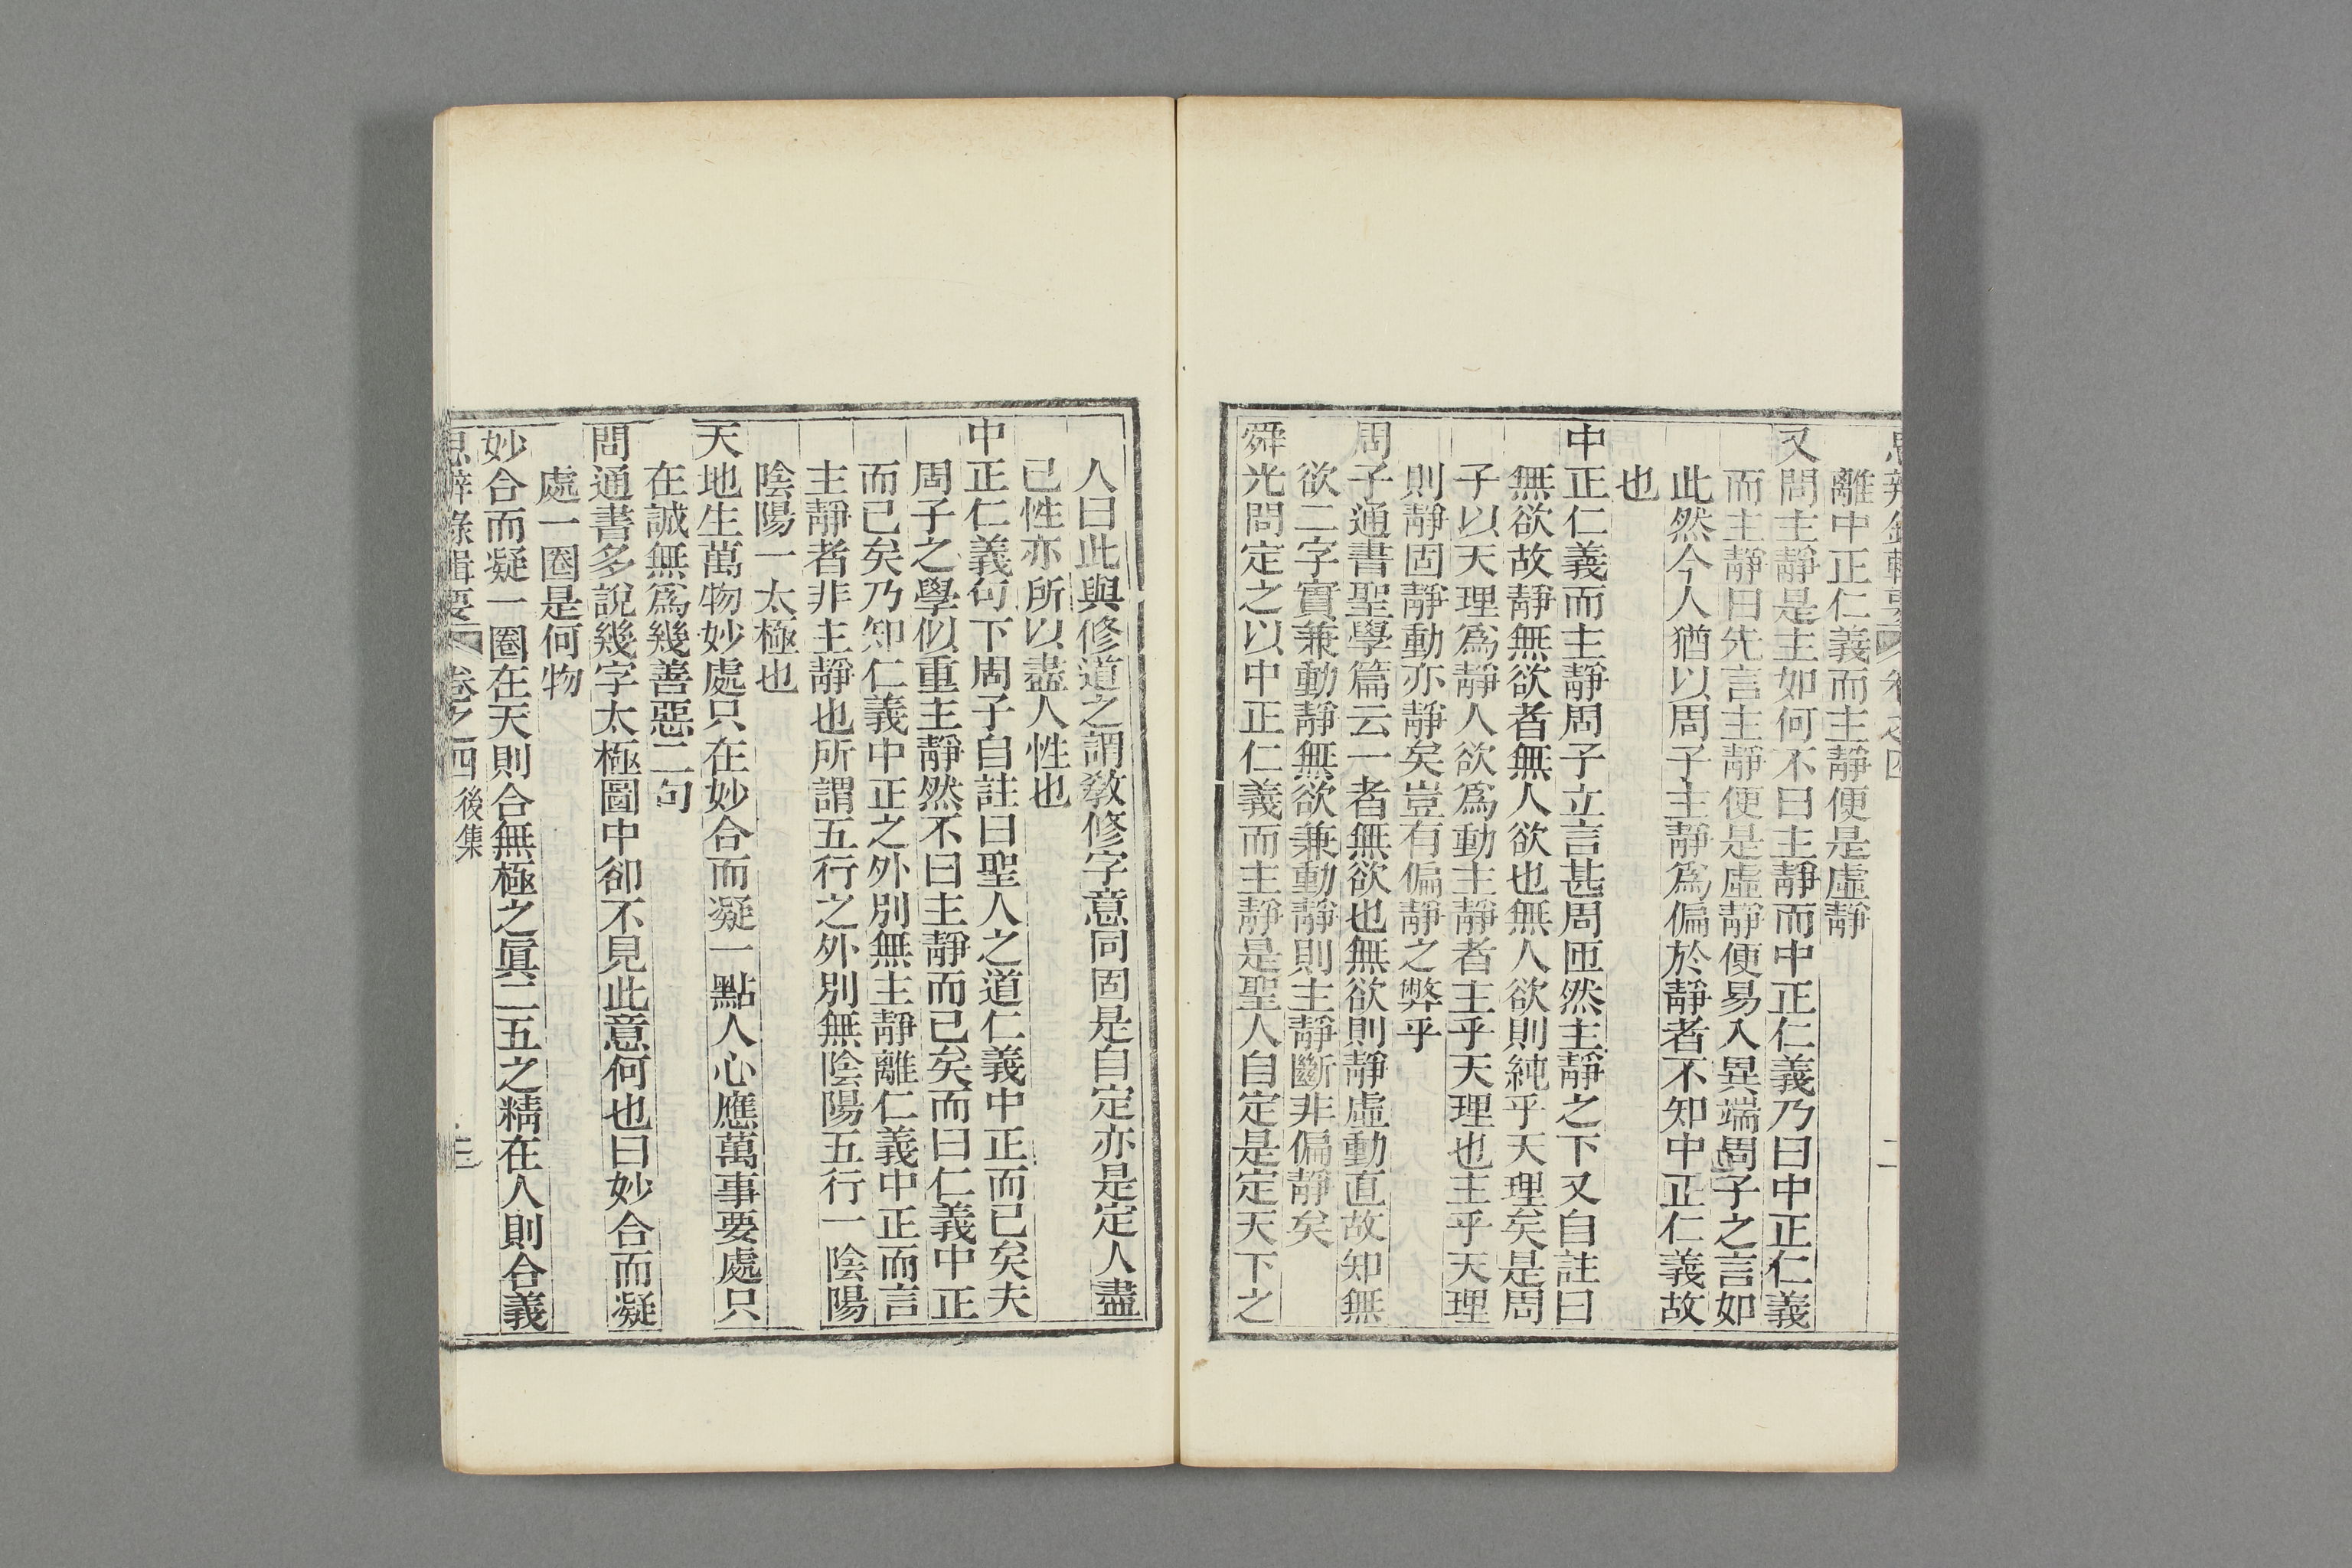 思辨錄輯要 卷之四 二
離中正仁義而主靜便是虛靜
又問主靜是主如何不曰主靜而中正仁義乃曰中正仁義
而主靜曰先言主靜便是虛靜便易入異端周子之言如
此然今人猶以周子主靜爲偏於靜者不知中正仁義故
也
中正仁義而主靜周子立言甚周匝然主靜之下又自註曰
無欲故靜無欲者無人欲也無人欲則純乎天理矣是周
子以天理爲靜人欲爲動主靜者主乎天理也主乎天理
則靜固靜動亦靜矣豈有偏靜之弊乎
周子通書聖學篇云一者無欲也無欲則靜虛動直故知無
欲二字實兼動靜無欲兼動靜則主靜斷非偏靜矣
舜光問定之以中正仁義而主靜是聖人自定是定天下之
人曰此與修道之謂敎修字意同固是自定亦是定人盡
己性亦所以盡人性也
中正仁義句下周子自註曰聖人之道仁義中正而已矣夫
周子之學似重主靜然不曰主靜而已矣而曰仁義中正
而已矣乃知仁義中正之外別無主靜離仁義中正而言
主靜者非主靜也所謂五行之外別無陰陽五行一陰陽
陰陽一太極也
天地生萬物妙處只在妙合而凝一點人心應萬事要處只
在誠無爲幾善惡二句
問通書多說幾字太極圖中卻不見此意何也曰妙合而凝
處一圈是何物
妙合而凝一圈在天則合無極之眞二五之精在人則合義
思辨錄輯要 卷之四 後集